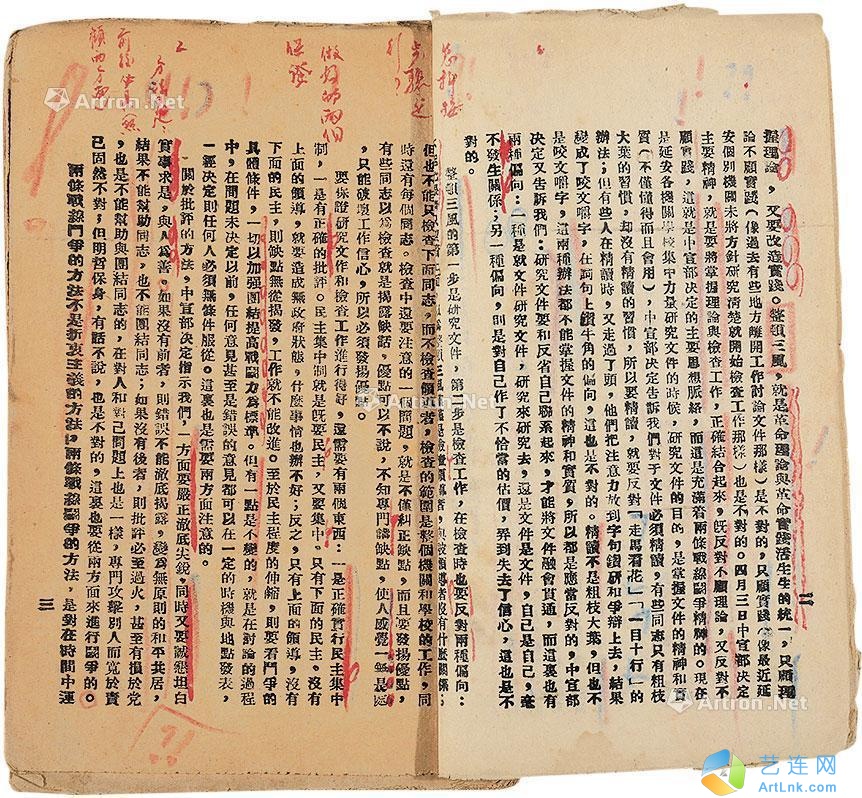 握理論，又要改造實踐。整頓三風，就是革命理論與革命實踐活生生的統一，只顧理
論不顧實踐（像過去有些地方離開工作討論文件那樣）是不對的，只顧實踐（像最近延
安個別機關未將方針研究清楚就開始檢查工作那樣）也是不對的。四月三日中宣部決定
主要精神，就是要將掌握理論與檢查工作，正確結合起來，旣反對不顧理論，又反對不
顧實踐，這就是中宣部決定的主要思想脈絡，而這是充滿着兩條戰線鬥爭精神的。現在
是延安各機關學校集中力量研究文件的時候，研究文件的目的，是掌握文件的精神和實
質（不僅懂得而且會用），中宣部決定告訴我們對于文件必須精讀，有些同志只有粗枝
大葉的習慣，却沒有精讀的習慣，所以要精讀，就要反對「走馬看花」「一目十行」的
辦法；但有些人在精讀時，又走過了頭，他們把注意力放到字句鑽研和爭辯上去，結果
變成了咬文嚼字，在詞句上鑽牛角的偏向，這也是不對的。精讀不是粗枝大葉，但也不
是咬文嚼字，這兩種辦法都不能掌握文件的精神和實質，所以都是應當反對的，中宣部
決定又告訴我們：研究文件要和反省自己聯系起來，才能將文件融會貫通，而這裏也有
兩種偏向：一種是就文件研究文件，研究來研究去，還是文件是文件，自己是自己，毫
不發生關係；另一種偏向，則是對自己作了不恰當的估價，弄到失去了信心，這也是不
對的。
整頓三風的第一步是研究文件，第二步是檢查工作，在檢查時也要反對兩種偏向：
但也不能只檢查下面同志，而不檢查領導者，檢查的範圍是整個機關和學校的工作，同
時還有每個同志。檢查中還要注意的一個問題，就是不僅糾正缺點，而且要發揚優點，
有些同志以爲檢查就是揭露缺點，優點可以不說，不知專門講缺點，使人感覺一無長處
，只能破壞工作信心，所以必須發揚優點。
要保證研究文件和檢查工作進行得好，還需要有兩個東西：一是正確實行民主集中
制，一是有正確的批評。民主集中制就是旣要民主，又要集中。只有下面的民主，沒有
上面的領導，就要造成無政府狀態，什麼事情也辦不好；反之，只有上面的領導，沒有
下面的民主，則缺點無從揭發，工作就不能改進。至於民主程度的伸縮，則要看鬥爭的
具體條件，一切以加强團結提高戰鬥力爲標準。但有一點是不變的，就是在討論的過程
中，在問題未決定以前，任何意見甚至是錯誤的意見都可以在一定的時機與地點發表，
一經決定則任何人必須無條件服從。這裏也是需要兩方面注意的。
關於批評的方法，中宣部決定指示我們，一方面要嚴正澈底尖銳，同時又要誠懇坦白
實事求是，與人爲善。如果沒有前者，則錯誤不能澈底揭露，變爲無原則的和平共居，
結果不能幫助同志，也不能團結同志；如果沒有後者，則批評必至過火，甚至有損於黨
，也是不能幫助與團結同志的，在對人和對己問題上也是一樣，專門攻擊別人而寬於責
己固然不對；但明哲保身，有話不說，也是不對的，這裏也要從兩方面來進行鬥爭的。
兩條戰線鬥爭的方法不是折衷主義的方法，兩條戰線鬥爭的方法，是對在時間中運
二
三
步驟之
做好的兩個
保證
Artron.Net
艺连网
ArtLnk.com